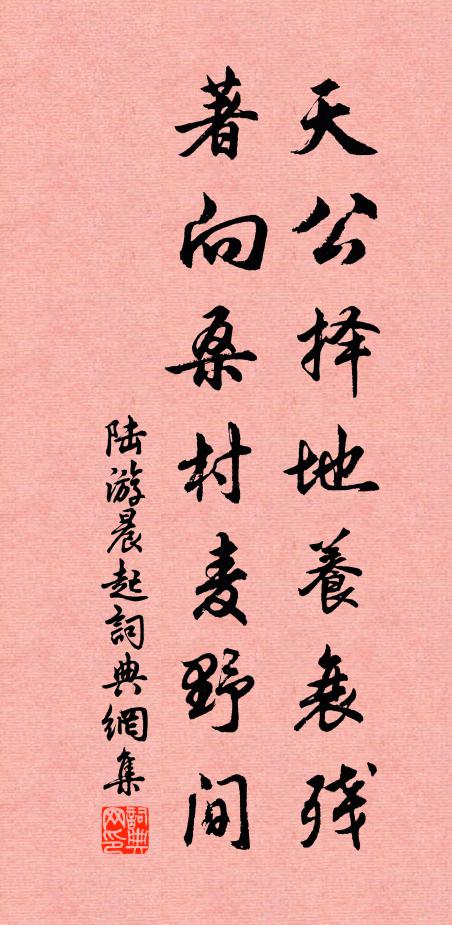 天公择地養衰残
著向桑村麦野间
陆游晨起詞典網集
詞典网印